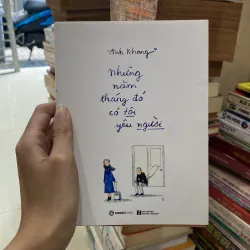 Anh Khang
Những
năm
tháng đó
có tôi
yêu người